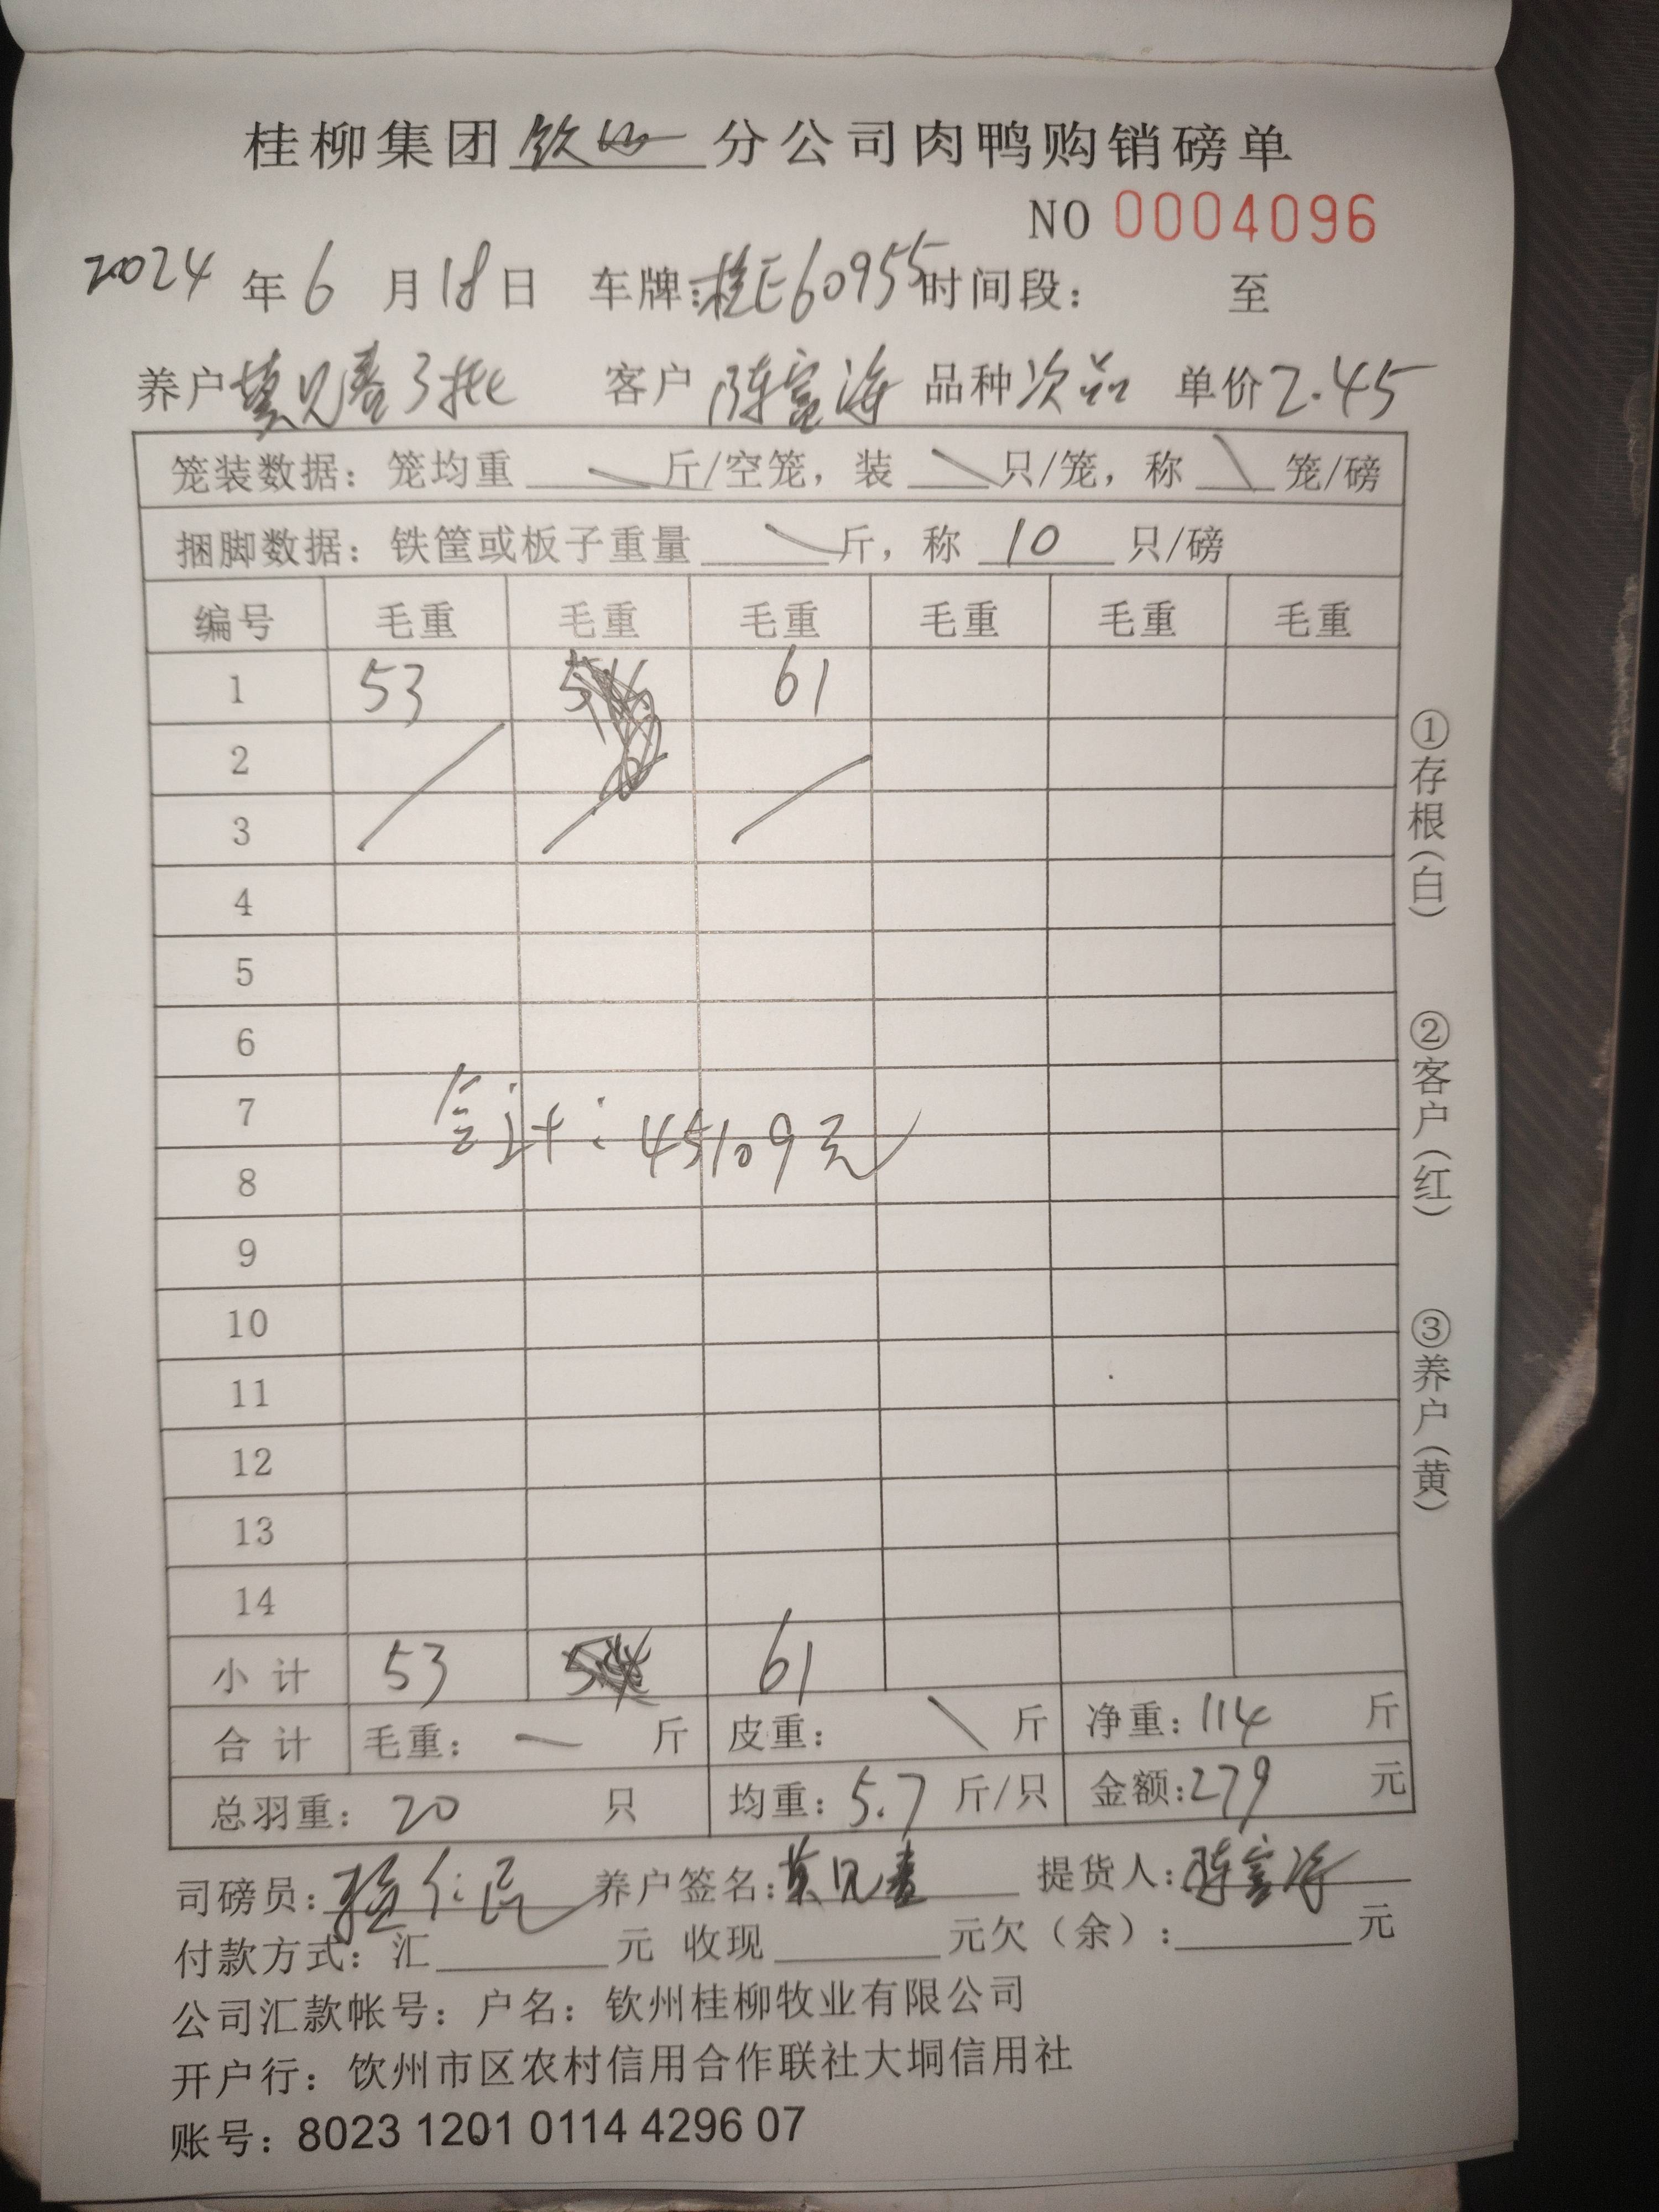 桂柳集团钦州分公司肉鸭购销磅单
NO 0004096
2024年6月18日 车牌:桂E60955时间段: 至
养户 见春3批 客户陈富海 品种次品 单价2.45
笼装数据：笼均重 斤/空笼，装 只/笼，称 笼/磅
捆脚数据：铁筐或板子重量 斤，称 10 只/磅
编号 毛重 毛重 毛重 毛重 毛重 毛重
1 53 61
2
3
4
5
6
7
合计：45109元
8
9
10
11
12
13
14
小计 53 61
合计 毛重： 斤 皮重： 斤 净重：114 斤
总羽重：20 只 均重：5.7 斤/只 金额:279 元
司磅员: 养户签名:莫见春 提货人:陈富海
付款方式：汇 元 收现 元欠（余）: 元
公司汇款帐号：户名：钦州桂柳牧业有限公司
开户行：饮州市区农村信用合作联社大垌信用社
账号：8023 1201 0114 4296 07
①存根(白)
②客户(红)
③养户(黄)